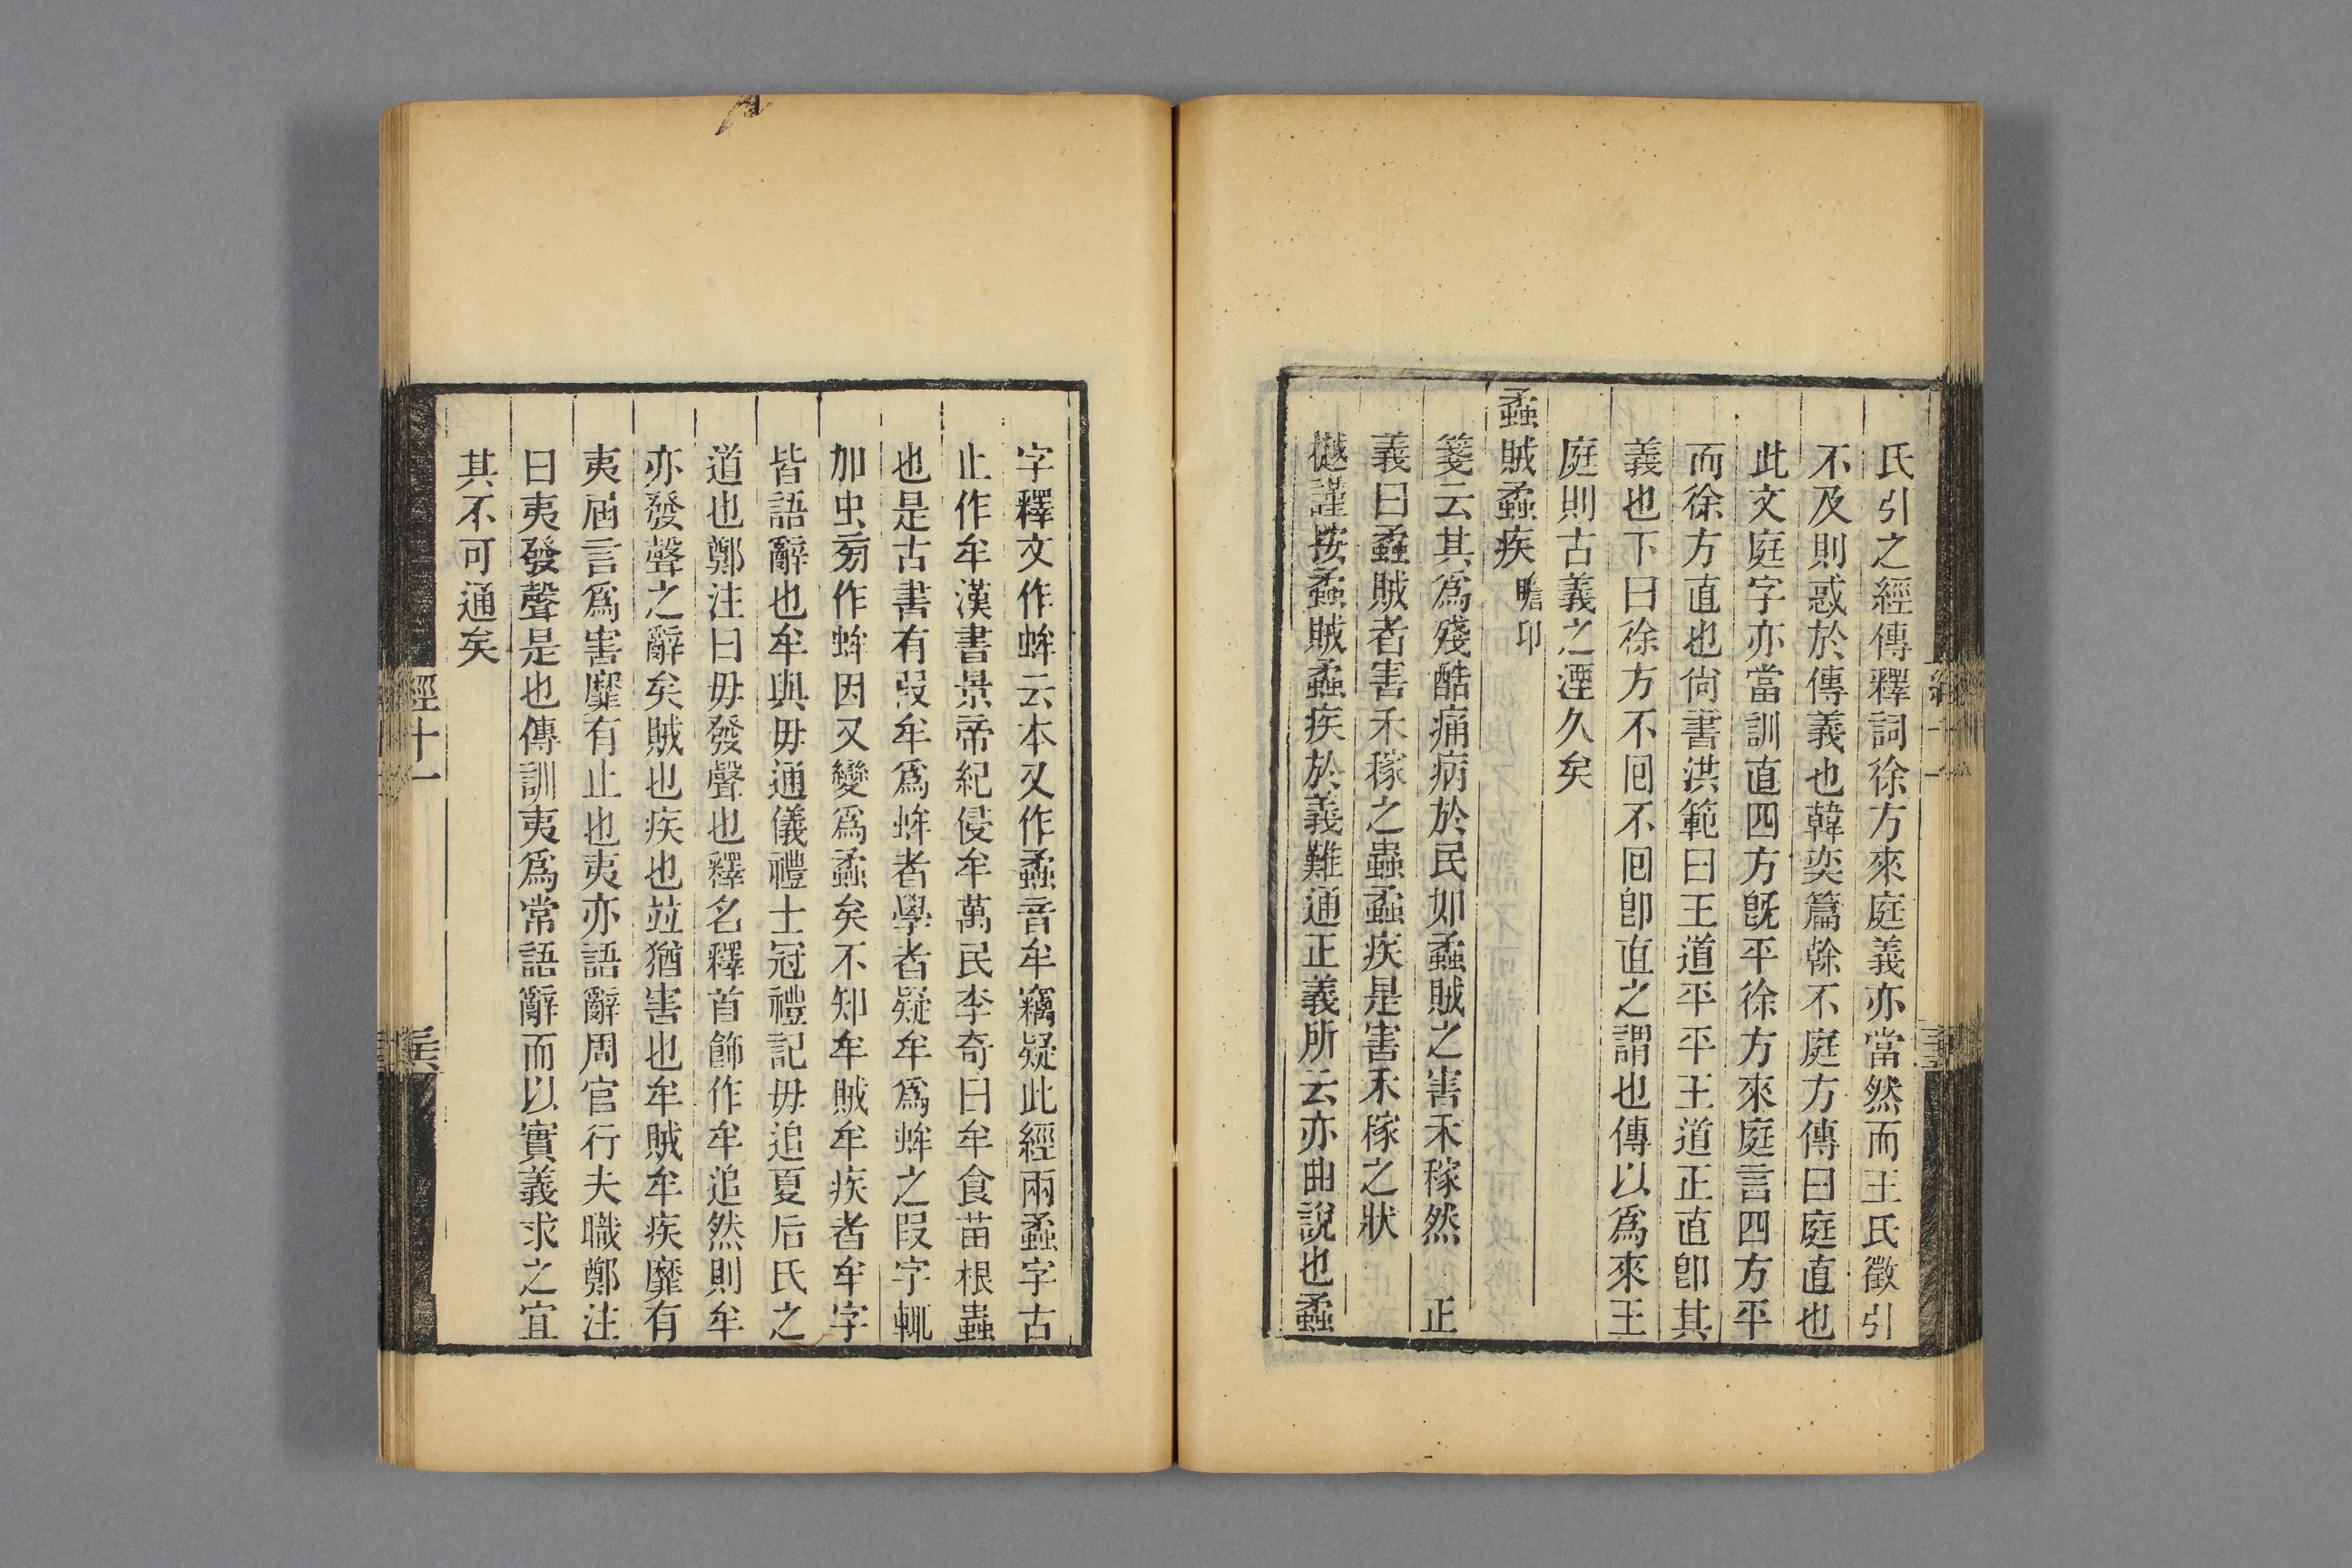 氏引之經傳釋詞徐方來庭義亦當然而王氏徵引
不及則惑於傳義也韓奕篇榦不庭方傳曰庭直也
此文庭字亦當訓直四方旣平徐方來庭言四方平
而徐方直也尙書洪範曰王道平平王道正直卽其
義也下曰徐方不囘不囘卽直之謂也傳以爲來王
庭則古義之湮久矣
蟊賊蟊疾 瞻卬
箋云其爲殘酷痛病於民如蟊賊之害禾稼然 正
義曰蟊賊者害禾稼之蟲蟊疾是害禾稼之狀
樾謹按蟊賊蟊疾於義難通正義所云亦曲說也蟊
字釋文作蛑云本又作蟊音牟竊疑此經兩蟊字古
止作牟漢書景帝紀侵牟萬民李奇曰牟食苗根蟲
也是古書有叚牟爲蛑者學者疑牟爲蛑之叚字輒
加虫旁作蛑因又變爲蟊矣不知牟賊牟疾者牟字
皆語辭也牟與毋通儀禮士冠禮記毋追夏后氏之
道也鄭注曰毋發聲也釋名釋首飾作牟追然則牟
亦發聲之辭矣賊也疾也竝猶害也牟賊牟疾靡有
夷屆言爲害靡有止也夷亦語辭周官行夫職鄭注
曰夷發聲是也傳訓夷爲常語辭而以實義求之宜
其不可通矣
經十一